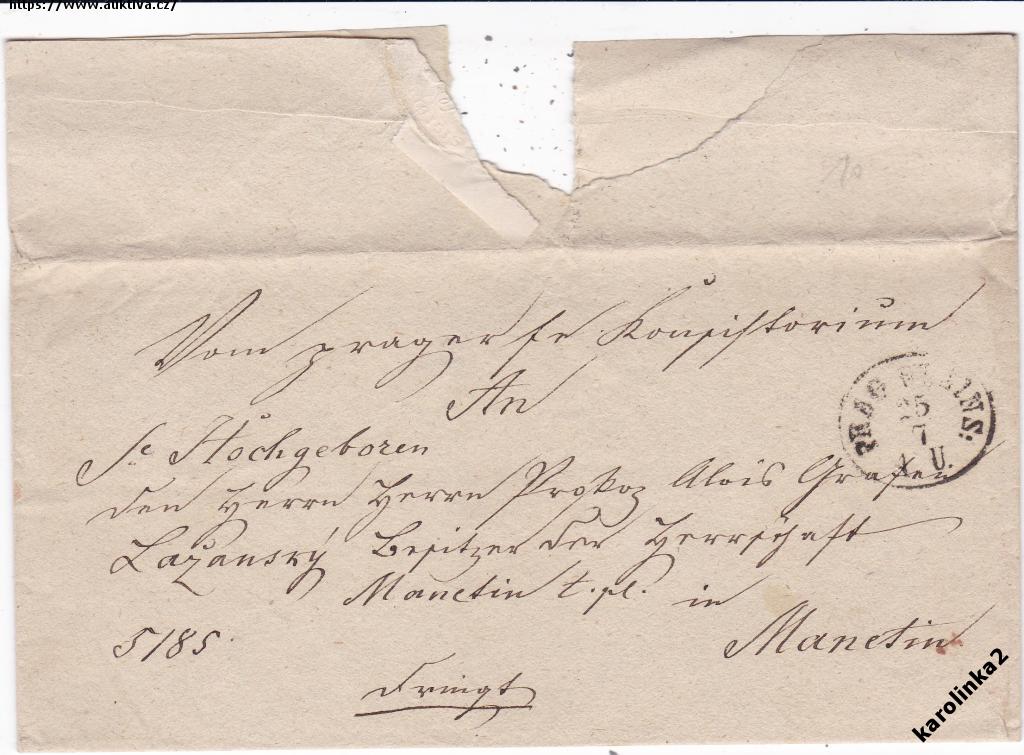 https://www.auktiva.cz/
10
Vom prager fe Konsistorium
An
Se Hochgeboren
den Herrn Herrn Prokop Alois Grafen
Lažanský Besitzer der Herrschaft
Manetin t. pl. in
Manetin
5185.
dringt
PRAG KLEINS:
25
7
4 U.
karolinka2